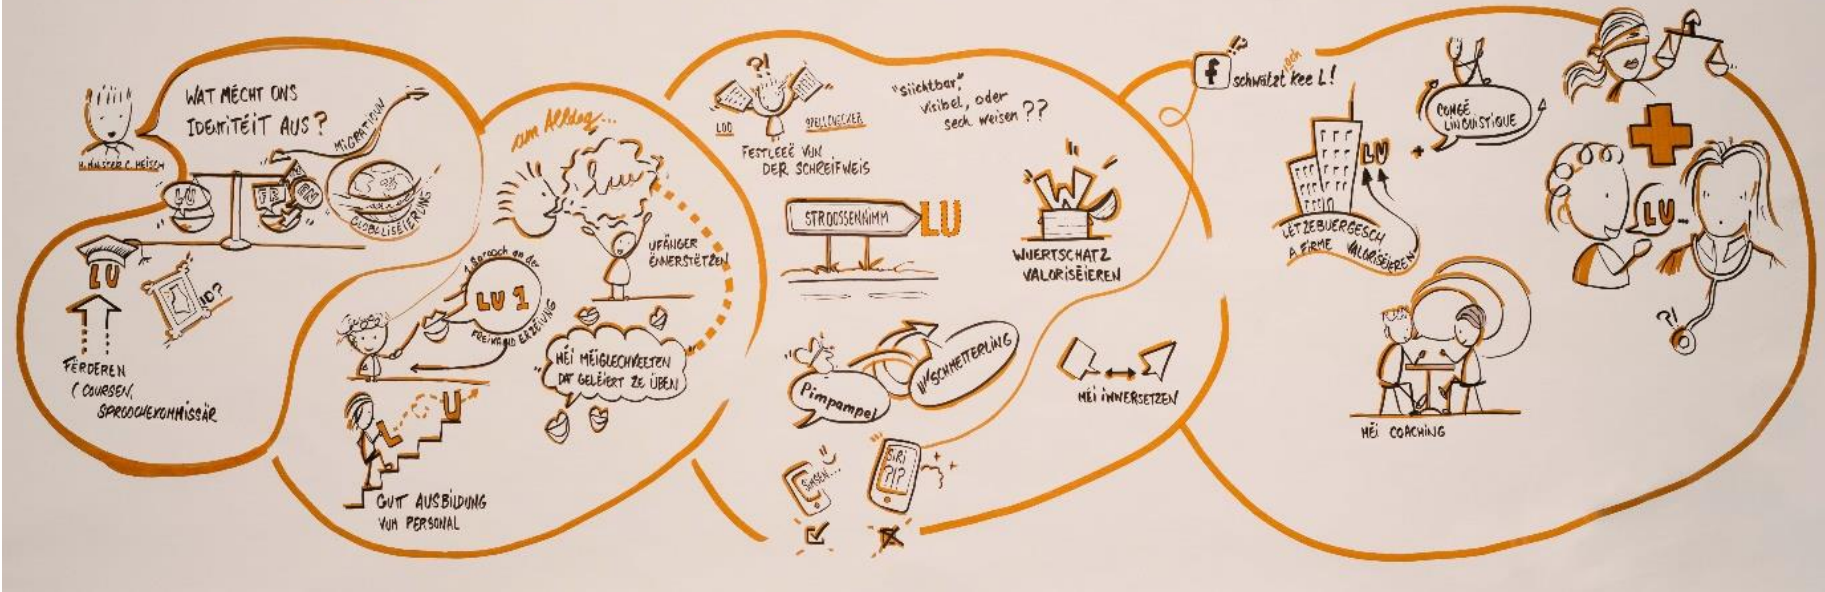 WAT MECHT ONS
IDENTITÉIT AUS?
MIGRATIOUN
LU
FR
EN
GLOBALISÉIERUNG
LU
ID?
FÉRDEREN
(COURSEN,
SPROOCHEKOMMISSÄR
am Alldag...
UFÄNGER
ËNNERSTËTZEN
1. Sprooch an der
LU 1
FREIKAND ERZÉIUNG
MÉI MÉIGLECHKEETEN
DAT GELÉIERT ZE ÜBEN
L
U
GUTT AUSBILDUNG
VUM PERSONAL
?!
LOD
SPELLCHECKER
FESTLEEË VUN
DER SCHREIFWEIS
"Siichtbar,"
visibel, oder
sech weisen ??
STROOSSENNIMM
LU
W
WUERTSCHATZ
VALORISÉIEREN
Pimpampel
"SCHMETTERLING
MÉI ËNNERSETZEN
SIMSEN...
SIRI
?!?
f
!?
schwätzt kee L!
och
LU
+
CONGÉ
LINGUISTIQUE
LËTZEBUERGESCH
A FIRME VALORISÉIEREN
MÉI COACHING
LU...
?!